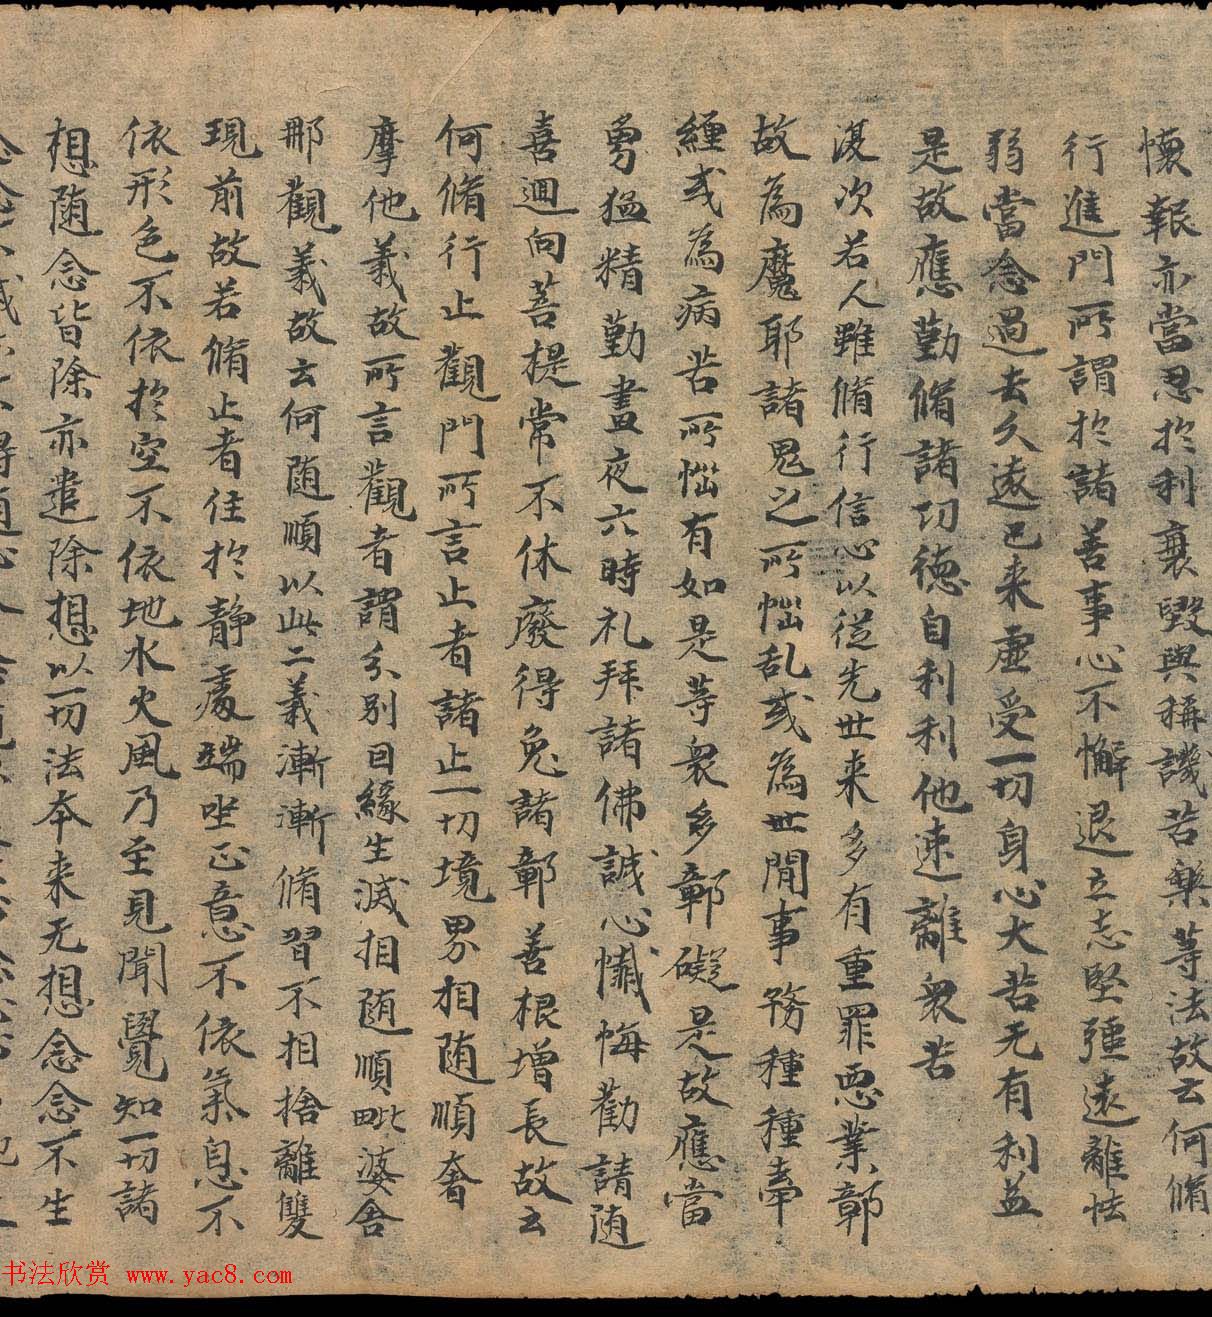 懷報亦當忍於利衰毀與稱譏苦樂等法故云何脩
行進門所謂於諸善事心不懈退立志堅强遠離怯
弱當念過去久遠已来虛受一切身心大苦无有利益
是故應勤脩諸功德自利利他速離衆苦
復次若人雖脩行信心以從先世来多有重罪惡業鄣
故為魔耶諸鬼之所惱乱或為世間事務種種牽
纏或為病苦所惱有如是等衆多鄣礙是故應當
勇猛精勤晝夜六時礼拜諸佛誠心懺悔勸請随
喜迴向菩提常不休廢得免諸鄣善根增長故云
何脩行止觀門所言止者諸止一切境界相随順奢
摩他義故所言觀者謂分別因緣生滅相随順毗婆舍
那觀義故云何随順以此二義漸漸脩習不相捨離雙
現前故若脩止者住於靜處端坐正意不依氣息不
依形色不依於空不依地水火風乃至見聞覺知一切諸
想随念皆除亦遣除想以一切法本来无想念念不生